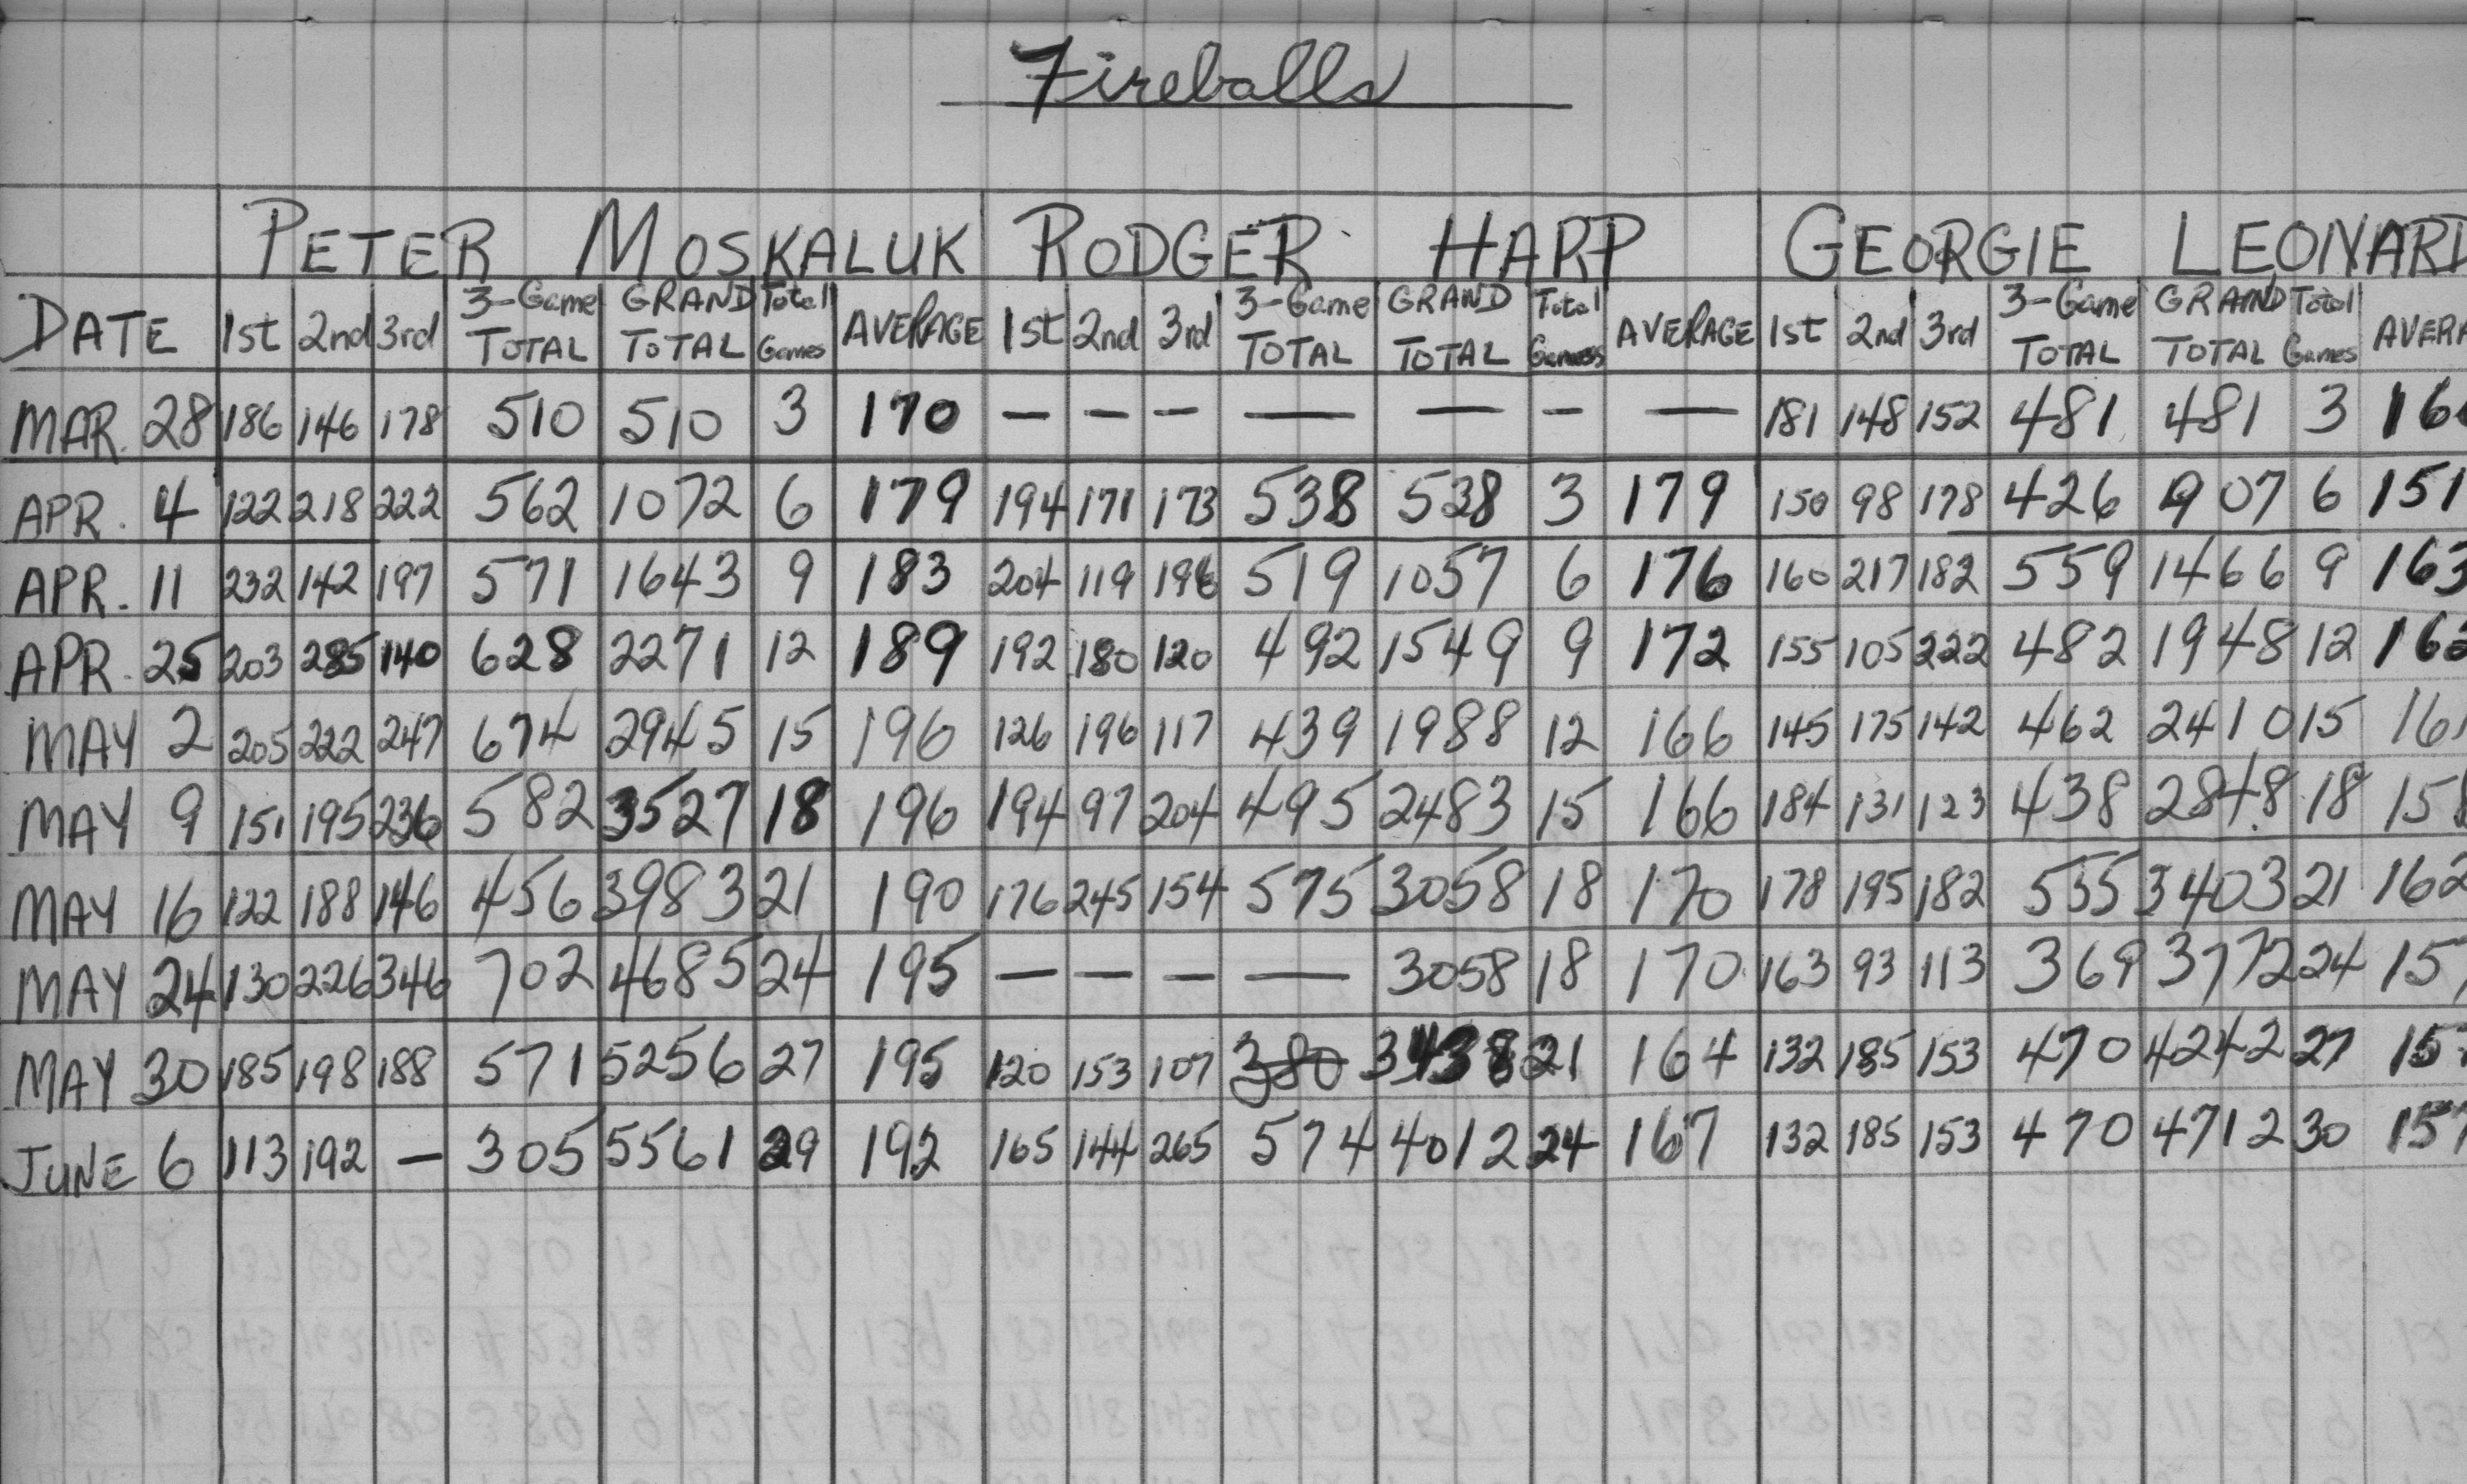 Fireballs
PETER MOSKALUK RODGER HARP GEORGIE LEONARD
DATE 1st 2nd 3rd 3-Game TOTAL GRAND TOTAL Total Games AVERAGE 1st 2nd 3rd 3-Game TOTAL GRAND TOTAL Total Games AVERAGE 1st 2nd 3rd 3-Game TOTAL GRAND TOTAL Total Games AVERA
MAR. 28 186 146 178 510 510 3 170 — — — — — — — 181 148 152 481 481 3 16
APR. 4 122 218 222 562 1072 6 179 194 171 173 538 538 3 179 150 98 178 426 907 6 151
APR. 11 232 142 197 571 1643 9 183 204 119 196 519 1057 6 176 160 217 182 559 1466 9 163
APR. 25 203 285 140 628 2271 12 189 192 180 120 492 1549 9 172 155 105 222 482 1948 12 162
MAY 2 205 222 247 674 2945 15 196 126 196 117 439 1988 12 166 145 175 142 462 2410 15 161
MAY 9 151 195 236 582 3527 18 196 194 97 204 495 2483 15 166 184 131 123 438 2848 18 158
MAY 16 122 188 146 456 3983 21 190 176 245 154 575 3058 18 170 178 195 182 555 3403 21 162
MAY 24 130 226 346 702 4685 24 195 — — — — 3058 18 170 163 93 113 369 3772 24 157
MAY 30 185 198 188 571 5256 27 195 120 153 107 380 3438 21 164 132 185 153 470 4242 27 157
JUNE 6 113 192 — 305 5561 29 192 165 144 265 574 4012 24 167 132 185 153 470 4712 30 157